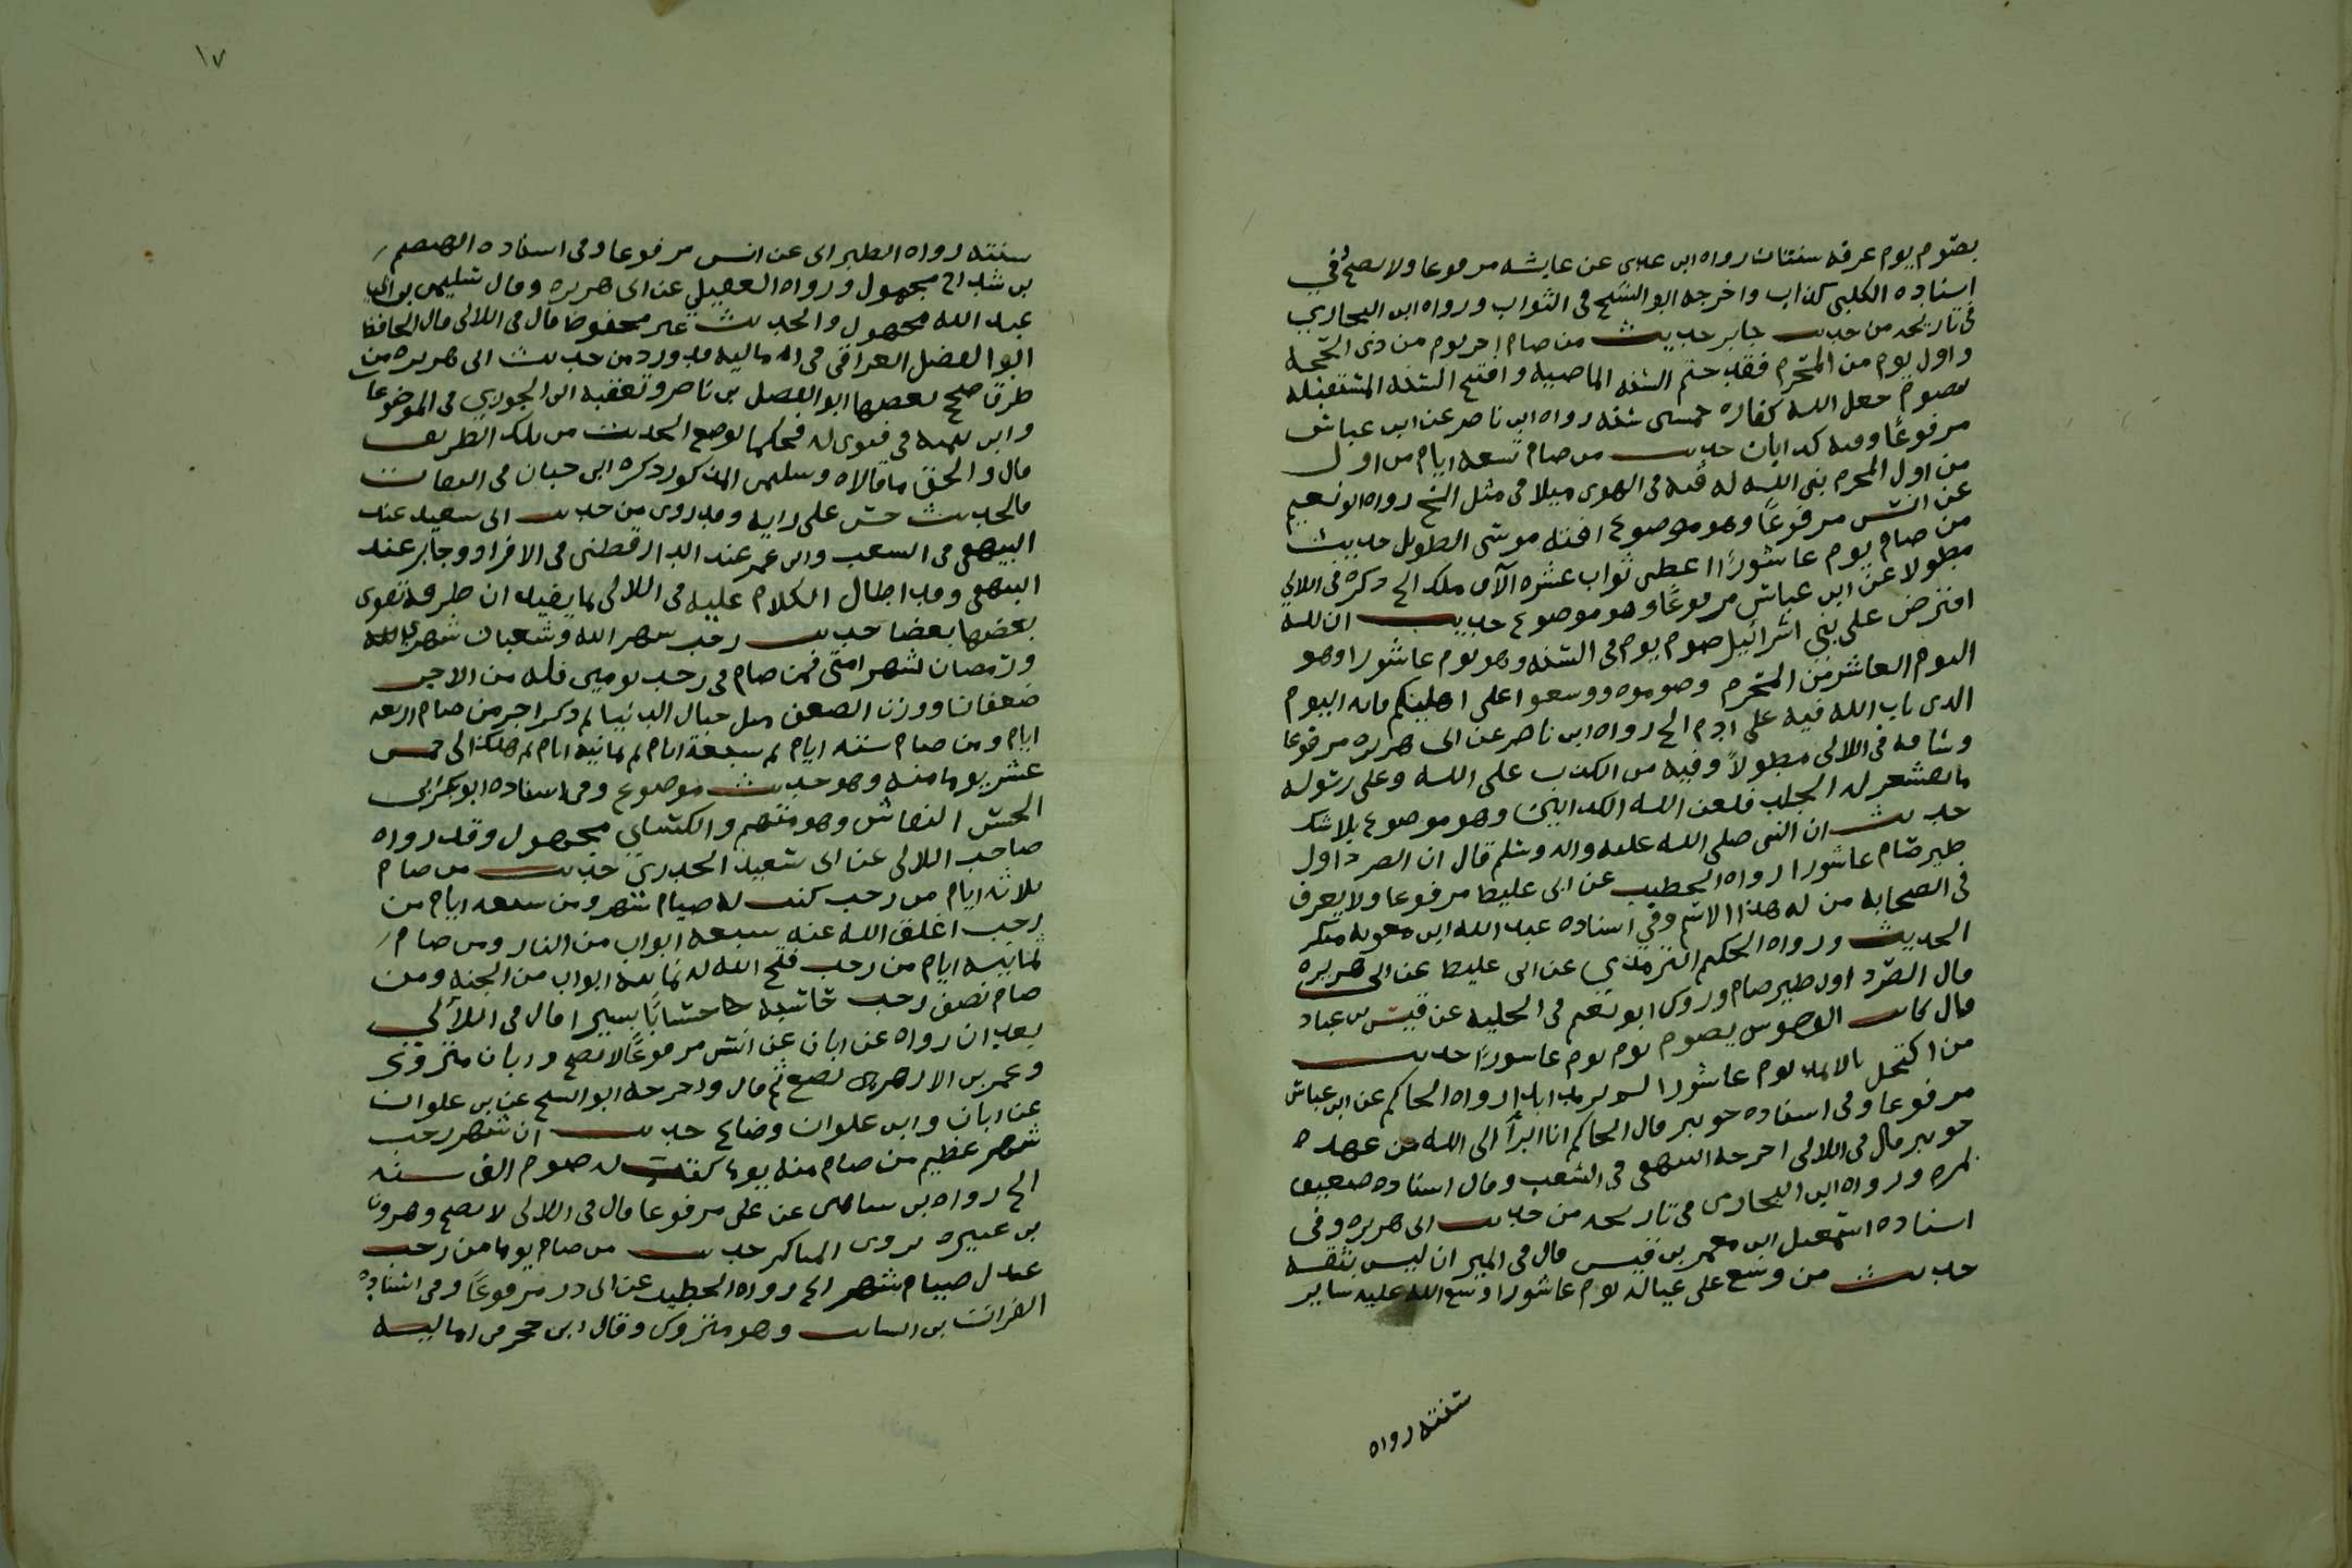 بصوم يوم عرفه سنتان رواه ابن عدى عن عايشه مرفوعا ولا يصح في
اسناده الكلبي كذاب واخرجه ابو الشيخ فى الثواب ورواه ابن النجاري
فى تاريخه من حديث جابر حديث من صام اخر يوم من ذى الحجه
واول يوم من المحرم فقد ختم السنه الماضيه وافتتح السنه المستقبله
بصوم جعل الله كفاره خمسين سنه رواه ابن ناصر عن ابن عباس
مرفوعًا وفيه كذابان حديث من صام تسعه ايام من اول
من اول المحرم بنى الله له قبه فى الهوى ميلا فى مثل الخ رواه ابو نعيم
عن انس مرفوعًا وهو موضوع افته موسى الطويل حديث
من صام يوم عاشورًا اعطى ثواب عشره الآف ملك الخ ذكره فى اللالي
مطولا عن ابن عباس مرفوعًا وهو موضوع حديث ان لله
افترض على بني اسرائيل صوم يوم فى السنه وهو يوم عاشورا وهو
اليوم العاشر من المحرم وصوموه ووسعوا على اهليكم فانه اليوم
الذى تاب الله فيه على ادم الخ رواه ابن ناصر عن ابى هريره مرفوعا
وساقه فى اللالى مطولاً وفيه من الكذب على الله وعلى رسوله
ما يقشعر له الجلد فلعن الله الكذابين وهو موضوع بلا شك
حديث ان النبى صلى الله عليه واله وسلم قال ان الصرد اول
طير صام عاشورا رواه الخطيب عن ابى غليظ مرفوعا ولا يعرف
فى الصحابه من له هذا الاسم وفي اسناده عبد الله ابن معويه منكر
الحديث ورواه الحكيم الترمذي عن ابى غليظ عن ابى هريره
قال الصرد اول طير صام وروى ابو نعيم فى الحليه عن قيس بن عباد
قال كانت الوحوش يصوم يوم يوم عاسورًا حديث
من اكتحل بالاثمد يوم عاشورا لم يرمد ابدا رواه الحاكم عن ابن عباس
مرفوعا وفى اسناده جويبر قال الحاكم انا ابرأ الى الله من عهده
جويبر قال فى اللالى اخرجه البيهقى فى الشعب وقال اسناده ضعيف
بمره ورواه ابن النجارى فى تاريخه من حديث ابى هريره وفى
اسناده اسمعيل ابن معمر بن قيس قال فى الميزان ليس بثقه
حديث من وسع على عياله يوم عاشورا وسع الله عليه ساير
سنته رواه
١٧
سنته رواه الطبرانى عن انس مرفوعا وفى اسناده الهيصم
بن شداخ مجهول ورواه العقيلي عن ابى هريره وقال سليمن بن ابى
عبد الله مجهول والحديث غير محفوظ قال فى اللالى قال الحافظ
ابو الفضل العراقى فى اماليه قد ورد من حديث ابى هريره من
طرق صحح بعضها ابو الفضل بن ناصر وتعقبه ابن الجوزي فى الموضوعات
وابن تيميه فى فتوى له فحكما بوضع الحديث من تلك الطريق
قال والحق ما قالاه وسليمن المذكور ذكره ابن حبان فى الثقات
فالحديث حسن على رايه وقد روى من حديث ابى سعيد عند
البيهقى فى الشعب وابن عمر عند الدارقطنى فى الافراد وجابر عند
البيهقى وقد اطال الكلام عليه فى اللالى بما يفيد ان طرقه تقوى
بعضها بعضا حديث رجب شهر الله وشعبان شهرى
ورمضان شهر امتى فمن صام فى رجب يومين فله من الاجر
ضعفان ووزن الضعف مثل جبال الدنيا ثم ذكر اجر من صام اربعه
ايام ومن صام سته ايام ثم سبعة ايام ثم ثمانيه ايام ثم هكذا الى خمس
عشر يوما منه وهو حديث موضوع وفى اسناده ابو بكر بن
الحسن النقاش وهو متهم والكسائي مجهول وقد رواه
صاحب اللالى عن ابى سعيد الخدري حديث من صام
ثلاثه ايام من رجب كتب له صيام شهر ومن سبعه ايام من
رجب اغلق الله عنه سبعه ابواب من النار ومن صام
ثمانيه ايام من رجب فتح الله له ثمانيه ابواب من الجنه ومن
صام نصف رجب حاسبه حسابًا يسيرا قال فى اللألي
بعد ان رواه عن ابان عن انس مرفوعًا لا يصح وابان متروك
وعمر بن الازهر يضع ثم قال واخرجه ابو الشيخ عن بن علوان
عن ابان وابن علوان وضاع حديث ان شهر رجب
شهر عظيم من صام منه يوما كتب له صوم الف سنه
الخ رواه بن شاهين عن على مرفوعا قال فى اللالى لا يصح وهرون
بن عنبره يروى المناكير حديث من صام يوما من رجب
عدل صيام شهر الخ رواه الخطيب عن ابى ذر مرفوعًا وفى اسناده
الفرات بن السائب وهو متروك وقال ابن حجر فى اماليه